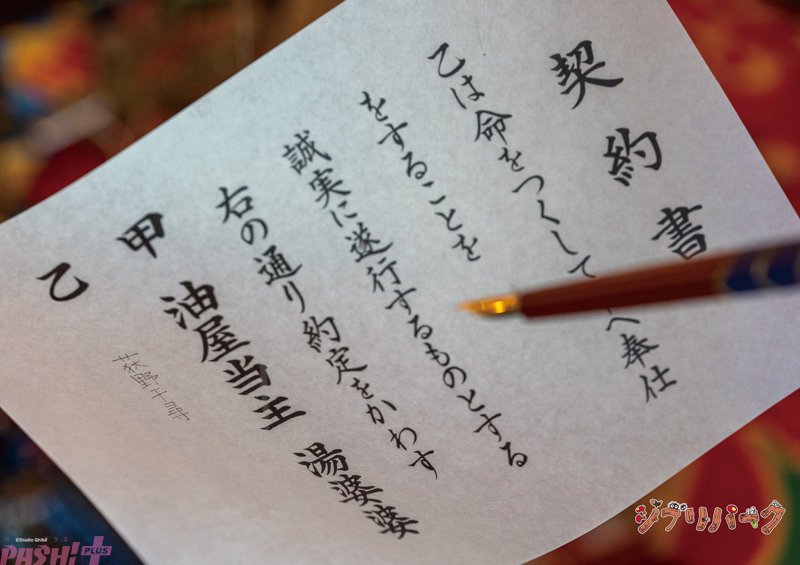 契約書
乙は命をつくして へ奉仕
をすることを
誠実に遂行するものとする
右の通り約定をかわす
甲 油屋当主 湯婆婆
乙 荻野千尋
ジブリパーク
©Studio Ghibli
PASH! PLUS